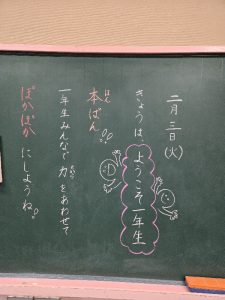 二月三日(火)
きょうは ようこそ一年生
本ばん!!
ほん
一年生みんなで力をあわせて
ちから
ぽかぽか にしようね!!